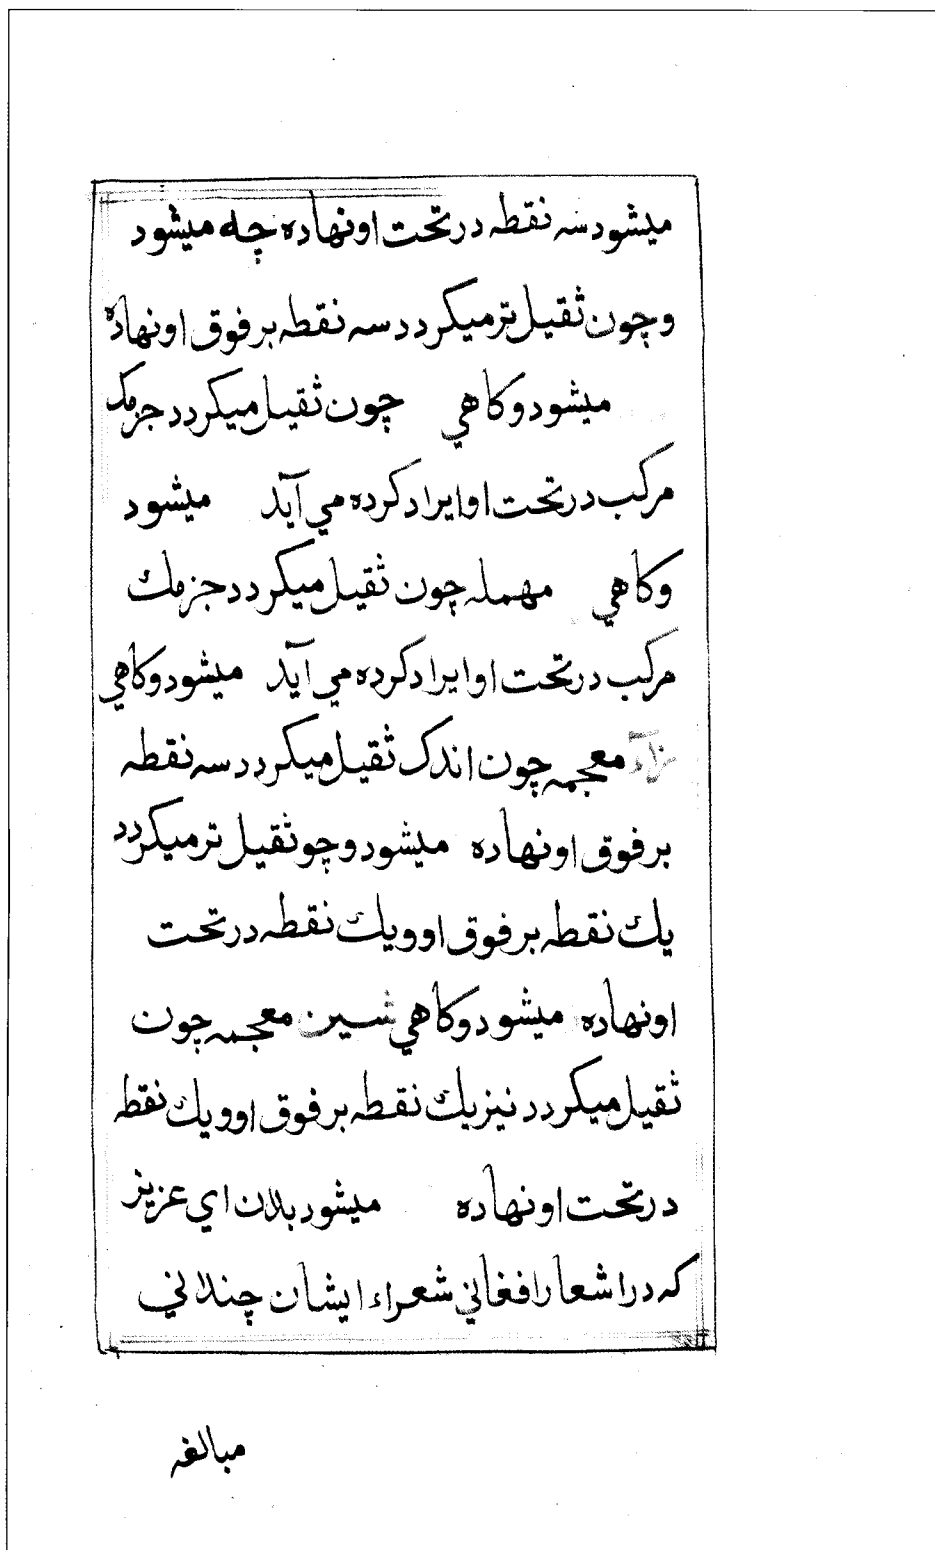 ميشود سه نقطه در تحت او نهاده چه ميشود
و چون ثقيل تر ميكردد سه نقطه بر فوق او نهاده
ميشود و كاهي چون ثقيل ميكردد جزمك
مركب در تحت او ايراد كرده مي آيد ميشود
و كاهي مهمله چون ثقيل ميكردد جزمك
مركب در تحت او ايراد كرده مي آيد ميشود و كاهي
زاء معجمه چون اندك ثقيل ميكردد سه نقطه
بر فوق او نهاده ميشود و چو ثقيل تر ميكردد
يك نقطه بر فوق او و يك نقطه در تحت
او نهاده ميشود و كاهي شين معجمه چون
ثقيل ميكردد نيز يك نقطه بر فوق او و يك نقطه
در تحت او نهاده ميشود بدان اي عزيز
كه در اشعار افغاني شعراء ايشان چنداني
مبالغه